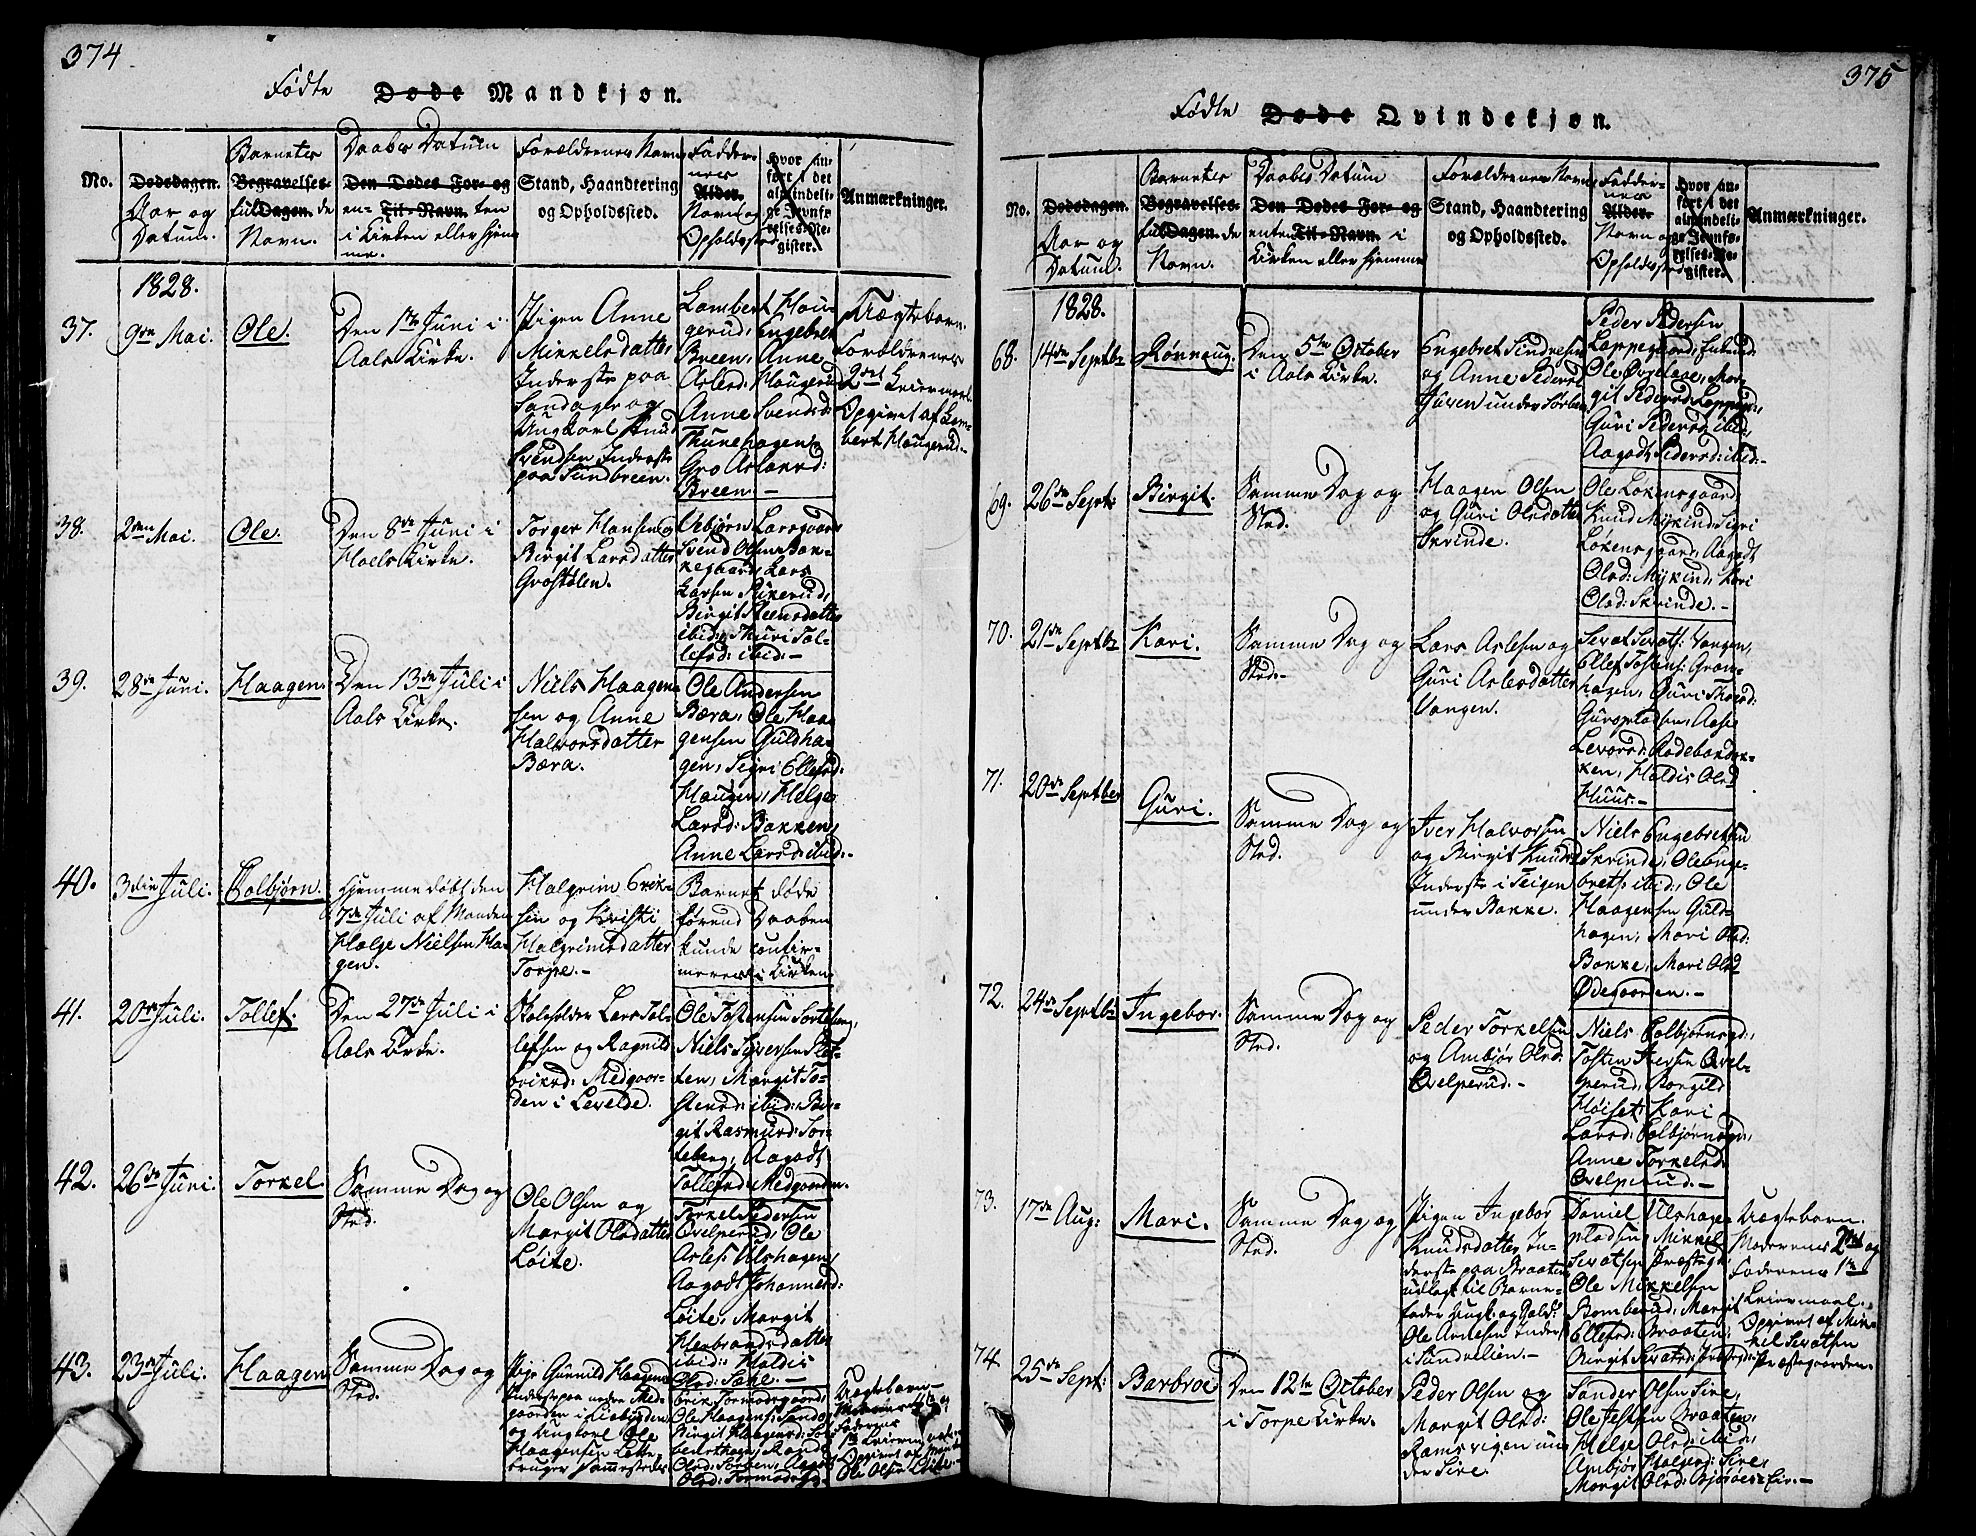 374
Fødte Døde Mandkjøn.
No.
Dødsdagen.
Aar og
Datum.
Barnets
Begravelses-
ful Dagen. de
Navn.
Daabs Datum
Den Dødes For- og
en- Til-Navn. ten
i Kirken eller Hjem
me.
Forældrenes Navn
Stand, Haandtering
og Opholdssted.
Fadder-
nes
Alder.
Navn og
Opholdssted
Hvor an-
ført i det
almindeli-
ge Jevnfø-
relses-Re-
gister.
Anmærkninger.
1828.
37.
9de Mai.
Ole.
Den 1te Juni i
Aals Kirke.
Pigen Anne
Mikkelsdatter
Inderste paa
Sandager og
Ungkarl Knud
Svendsen Inderste
paa Sundbreen.
Lambert Hau-
gerud, Engebret
Breen, Anne
Aslesd: Haugerud
Anne Svendsd:
Thunehagen,
Gro Aslaksd:
Breen.-
Uægtebarn.
Forældrenes
2det Leiermaal.
Opgivet af Lam-
bert Haugerud.-
38.
2den Mai.
Ole.
Den 8de Juni i
Hols Kirke.
Torger Hansen og
Birgit Larsdatter
Grostølen.
Asbjørn Larsgaard
Svend Olsen Bak-
kegaard, Lars
Larsen
Birgit Steensdatter
ibid:, Thuri Tol-
lefsd: ibid:-
39.
28de Juni.
Haagen.
Den 13de Juli i
Aals Kirke.
Niels Haagen-
sen og Anne
Halvorsdatter
Bæra.
Ole Andersen
Bæra, Ole Haa-
gensen Guldha-
gen, Sigri Ellefsd:
Haugen, Helge
Larsd: Bakken,
Anne Larsd: ibid:-
40.
3die Juli.
Colbjørn.
Hjemme døbt den
7de Juli af Manden
Helge Nielsen Ha-
gen.
Halgrim Erik-
sen og Kristi
Halgrimsdatter
Torpe.-
Barnet døde
førend Daaben
kunde confir-
meres i Kirken.
41.
20de Juli.
Tollef.
Den 27de Juli i
Aals Kirke.
Skoleholder Lars Tol-
lefsen og Ragnild
Eriksd: Medgaar-
den i Levelde.
Ole Tostensen Sorteberg,
Niels Siversen
ten, Margit To-
stensd: ibid: Bir-
git Rasmusd: Sor-
teberg, Aagodt
Tollefsd: Medgaarden.
42.
26de Juni.
Torkel.
Samme Dag og
Sted.
Ole Olsen og
Margit Olsdatter
Løite.
Torkel Pedersen
Qvelperud, Ole
Arles: Ulshagen,
Aagodt Johannesd:
Løite, Margit
Herbrandsdatter
ibid: Haldis
Olsd: Sake.-
43.
23de Juli.
Haagen
Samme Dag og
Sted.
Pige Gunnild Haagensd
Inderste paa nedre Med-
gaarden i Liabygden
og Ungkarl Ole
Haagensen
bruger sammesteds
Erik Tormodsgaard,
Ole Haagens:
Birgit Haagensd:
Olsd: Torsen, Aagodt
Olsd: Tormodsg.
Uægtebarn.-
Faderens
1te Leierm
Opgivet af
Ole Olsen Løite.-

375
Fødte Døde Qvindekjøn.
No.
Dødsdagen.
Aar og
Datum.
Barnets
Begravelses-
ful Dagen. de
Navn.
Daabs Datum
Den Dødes For- og
enten Til-Navn. i
Kirken eller Hjemme
Forældrenes Navn
Stand, Haandtering
og Opholdssted.
Fadder-
nes
Alder.
Navn og
Opholdssted
Hvor an-
ført i det
almindeli-
ge Jevnfø-
relses-Re-
gister.
Anmærkninger.
1828.
68.
14de Septbr
Rønnaug.
Den 5te October
i Aals Kirke.
Engebret Sindresen
og Anne Pedersd
Juven under Sørbøe
Peder Pedersen
Loppegaard,
Ole Mar-
git Pedersd: Loppegd,
Guri Pedersd ibid,
Aagodt Pedersd: ibid:-
69.
26de Sept:
Birgit.
Samme Dag og
Sted.
Haagen Olsen
og Guri Olsdatter
Skrinde.
Ole Løkensgaard,
Knud Mykind, Sigri
Løkensgaard, Aagodt
Olsd: Mykind, Kari
Olsd: Skrinde.-
70.
21de Septbr
Kari.
Samme Dag og
Sted.-
Lars Aslesen og
Guri Aslesdatter
Vangen.
Sevat Sevats: Vangen,
Ellef Tostens: Gran-
hagen, Guri Thorsd:
Aase
Levorsd: Rodebakk-
ken, Haldis Olsd
Huus.-
71.
20de Septber
Guri.
Samme Dag og
Sted.
Iver Halvorsen
og Birgit Knudsd
Inderste i Teigen
under Bakke.
Niels Engebretsen
Skrinde, Ole Enge-
brets: ibid:, Ole
Haagensen Guld-
hagen, Mari Olsd:
Bakke, Mari Olsd
Ødegaarden.-
72.
24de Septbr
Ingebor.
Samme Dag og
Sted.
Peder Torkelsen
og Ambjør Olsd:
Qvelperud.-
Niels Colbjørnsgd:,
Tosten Iversen Qvel-
perud, Ragnild
Høiset, Kari
Larsd: Colbjørnsgd,
Anne Torkelsd:
Qvelperud.-
73.
17de Aug:
Mari.
Samme Dag og
Sted.
Pigen Ingebor
Knudsdatter In-
derste paa Braaten
udlagt til Barne-
fader Ungk: og Sold:
Ole Arnesen Inderst
i Sundrelien.-
Daniel Ulshage-
pladsen, Mikkel
Sevatsen Præstegd:
Ole Mikkelsen
Bomberud, Margit
Ellefsd: Braaten,
Birgit Sevatsd: Præstegd:
Uægtebarn.
Moderens 2det og
Faderens 1te
Leiermaal.
Opgivet af Mik-
kel Sevatsen
Præstegaarden.-
74.
25de Sept:
Barbroe
Den 12te October
i Torpe Kirke.
Peder Olsen og
Margit Olsd:
Ramsvigen un-
der Sire.
Sander Olsen Sire,
Ole Jestsen Braaten,
Helge Olsd: ibid:,
Ambjør Halversd: Sire,
Margit Olsd: